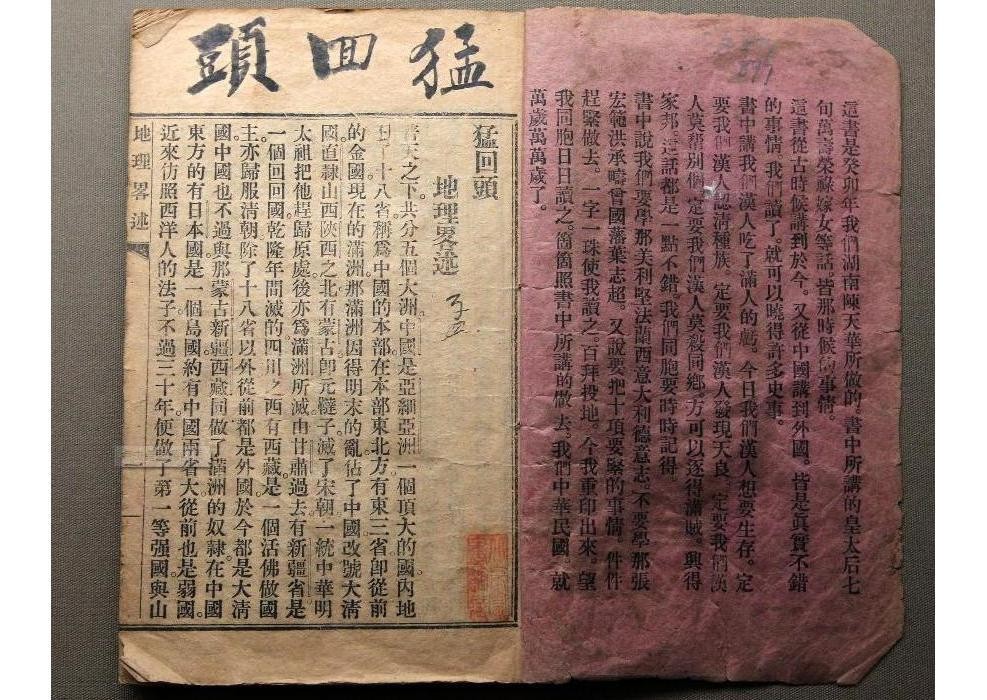 這書是癸卯年我們湖南陳天華所做的。書中所講的皇太后七
旬萬壽榮祿嫁女等話。皆那時候的事情。
這書從古時候講到於今。又從中國講到外國。皆是眞實不錯
的事情。我們讀了。就可以曉得許多史事。
書中講我們漢人吃了滿人的虧。今日我們漢人想要生存。定
要我們漢人認清種族。定要我們漢人發現天良。定要我們漢
人莫幫別個。定要我們漢人莫殺同鄉。方可以逐得滿賊。興得
家邦。這話都是一點不錯。我們同胞要時時記得
書中說我們要學那美利堅法蘭西意大利德意志。不要學那張
宏範洪承疇曾國藩葉志超。又說要把十項要緊的事情。件件
趕緊做去。一字一珠使我讀之。百拜投地。今我重印出來。望
我同胞日日讀之。箇箇照書中所講的做去。我們中華民國。就
萬歲萬萬歲了。
猛回頭
猛回頭
地理畧述
普天之下。共分五個大洲。中國是亞細亞洲一個頂大的國。內地
十八省。稱爲中國的本部。在本部東北方有東三省。卽從前
的金國現在的滿洲。那滿洲因得明末的亂。佔了中國改號大淸
國。直隸山西陝西之北有蒙古。卽元韃子。滅了宋朝一統中華。明
太祖把他趕歸原處。後亦爲滿洲所滅。由甘肅過去有新疆省。是
一個回回國。乾隆年間滅的。四川之西有西藏。是一個活佛做國
主。亦歸服淸朝。除了十八省以外。從前都是外國。於今都是大淸
國。中國也不過與那蒙古新疆西藏同做了滿洲的奴隸。在中國
東方的有日本國。是一個島國。約有中國兩省大。從前也是弱國。
近來仿照西洋人的法子。不過三十年。便做了第一等强國。與山
地理畧述